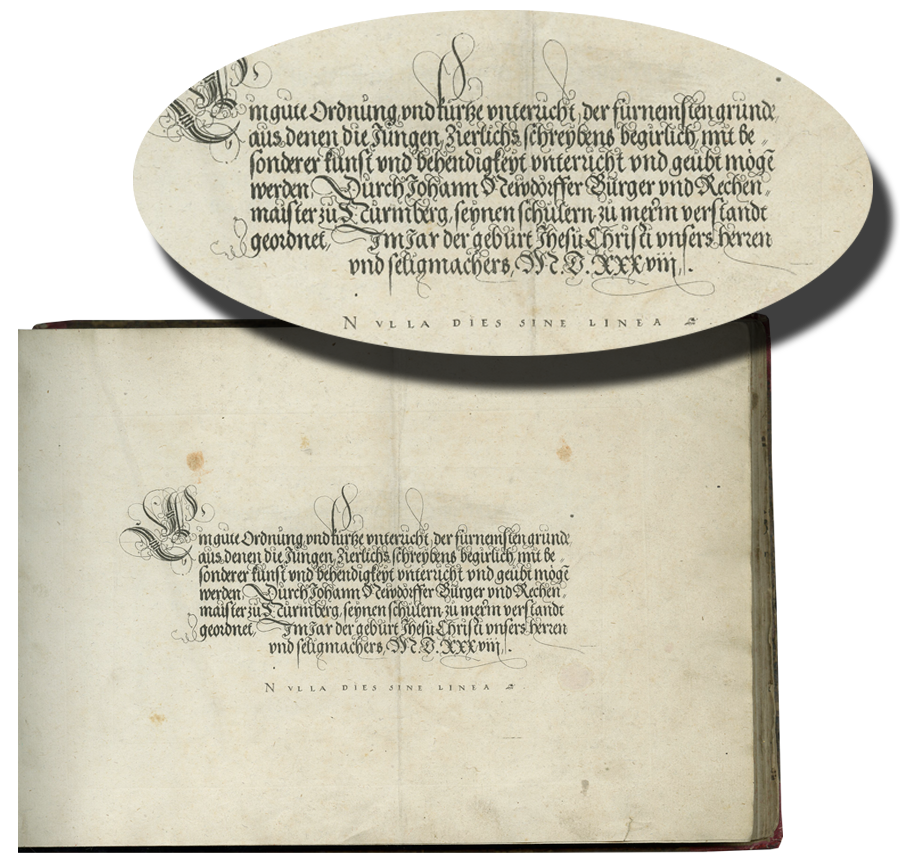 Ein gute Ordnung, vnd kurtze vnterricht, der furnemsten grunde,
aus denen die Jungen, Zierlichs schreybens begirlich, mit be=
sonderer kunst vnd behendigkeyt vnterricht vnd geubt mögē
werden. Durch Johann Newdorffer Burger vnd Rechen=
maister zu Nurmberg, seynen schulern zu merern verstandt
geordnet, Im Jar der geburt Jhesu Christi vnsers herren
vnd seligmachers, M.D.XXXviij.
NVLLA DIES SINE LINEA
Ein gute Ordnung, vnd kurtze vnterricht, der furnemsten grunde,
aus denen die Jungen, Zierlichs schreybens begirlich, mit be=
sonderer kunst vnd behendigkeyt vnterricht vnd geubt mögē
werden. Durch Johann Newdorffer Burger vnd Rechen=
maister zu Nurmberg, seynen schulern zu merern verstandt
geordnet, Im Jar der geburt Jhesu Christi vnsers herren
vnd seligmachers, M.D.XXXviij.
NVLLA DIES SINE LINEA